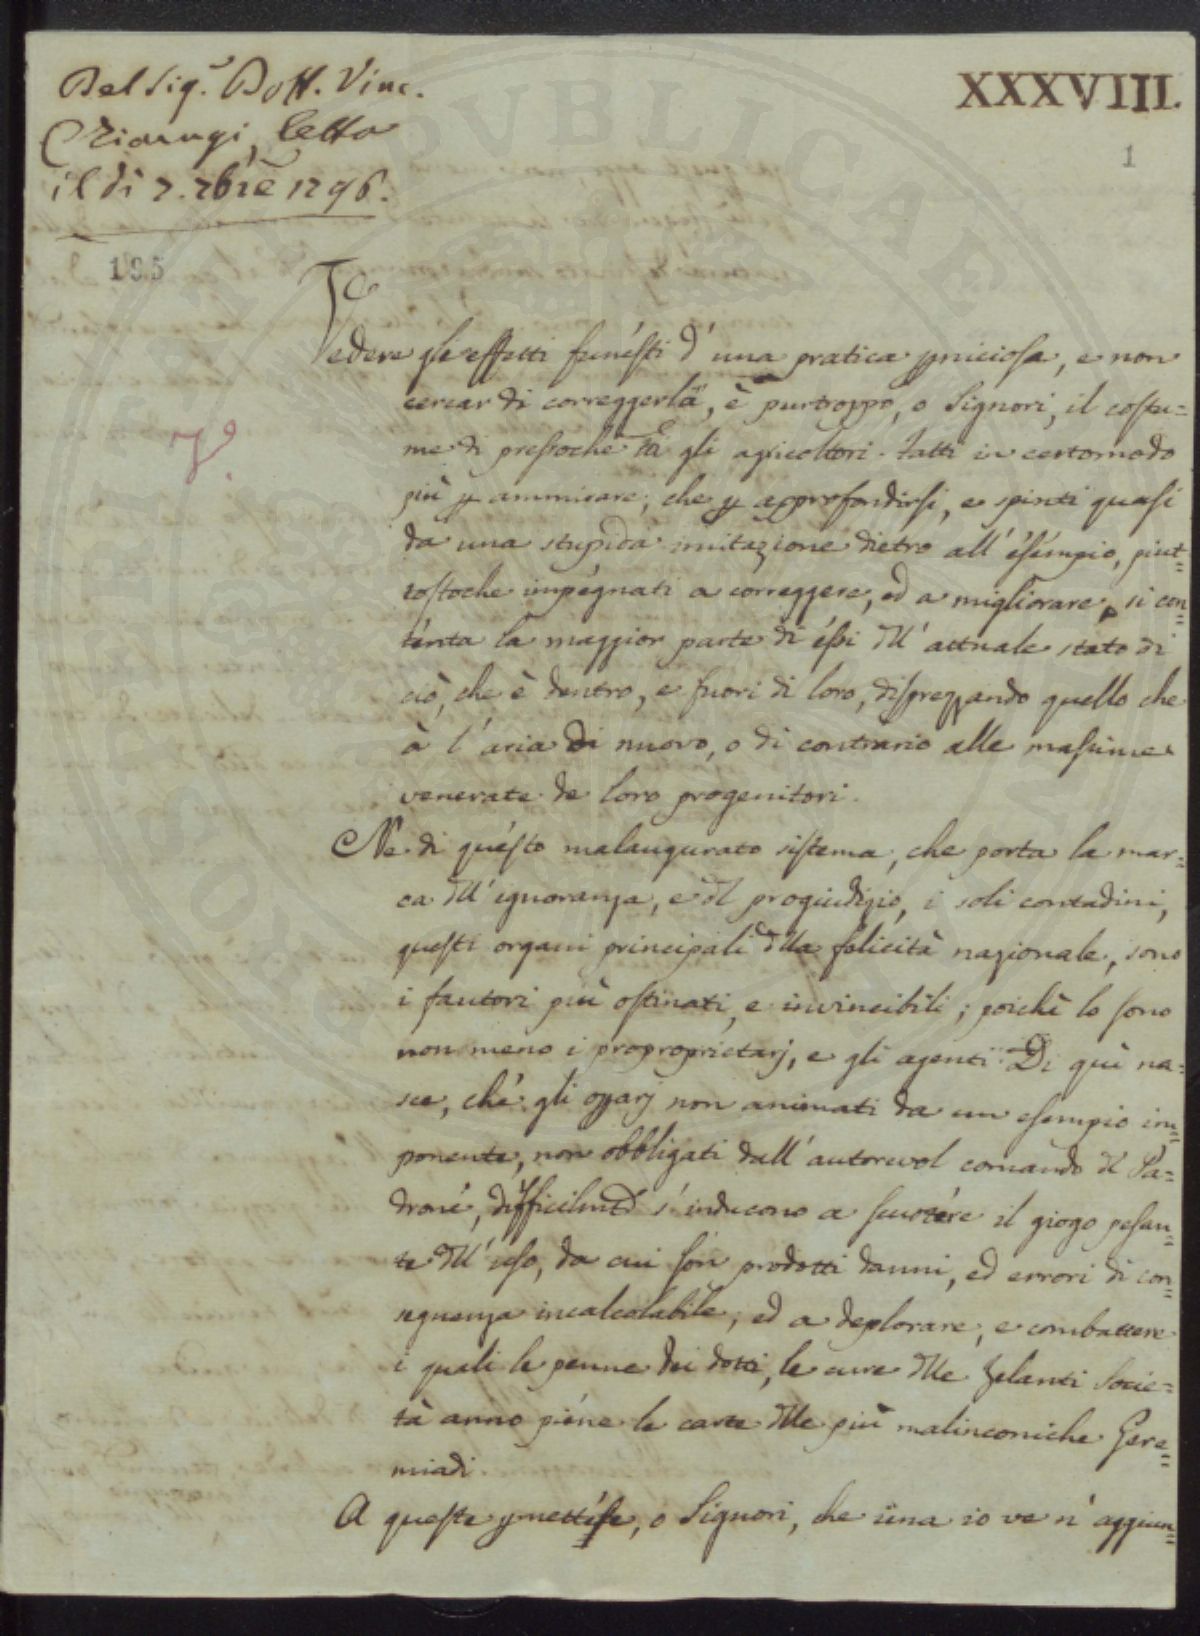 Del Sig.r Dott. Vinc.
Chiarugi, letta
il dì 7. 7bre 1796.
XXXVIII.
1
195
Vedere gli effetti funésti d' una pratica pniciosa, e non
cercar di correggerla, è purtroppo, o Signori, il costu=
me di pressochè tti gli agricoltori. Fatti in certo modo
più p ammirare, che p approfondirsi, e spinti quasi
da una stupida imitazione dietro all' ésémpio, piut=
tostoche impégnati a correggere, ed a migliorare, si con=
ténta la maggior parte di éssi dll' attuale stato di
ciò, che è dentro, e fuori di loro, disprezzando quello che
à l' aria di nuovo, o di contrario alle massime
venerate da loro progenitori.
Ne di quésto malaugurato sistema, che porta la mar=
ca dll' ignoranza, e dl progiudizio, i soli contadini,
questi organi principali dlla felicità nazionale, sono
i fautori più ostinati, e invincibili; poichè lo sono
non meno i proproprietarj, e gli agenti. Di quì na=
sce, ché gli oparj non animati da un esempio im=
ponente, non obbligati dall' autorevol comando dl Pa=
droné, difficilmte s' inducono a scuotére il giogo pesan=
te dll' uso, da cui són prodotti danni, ed errori di con=
seguenza incalcolabile; ed a deplorare, e combattere
i quali le penne dei dotti, le cure dlle zelanti Socie=
tà anno piéne le carte dlle più malinconiche Gere=
miadi.
A queste pmettése, o Signori, che una io ve n' aggiun=